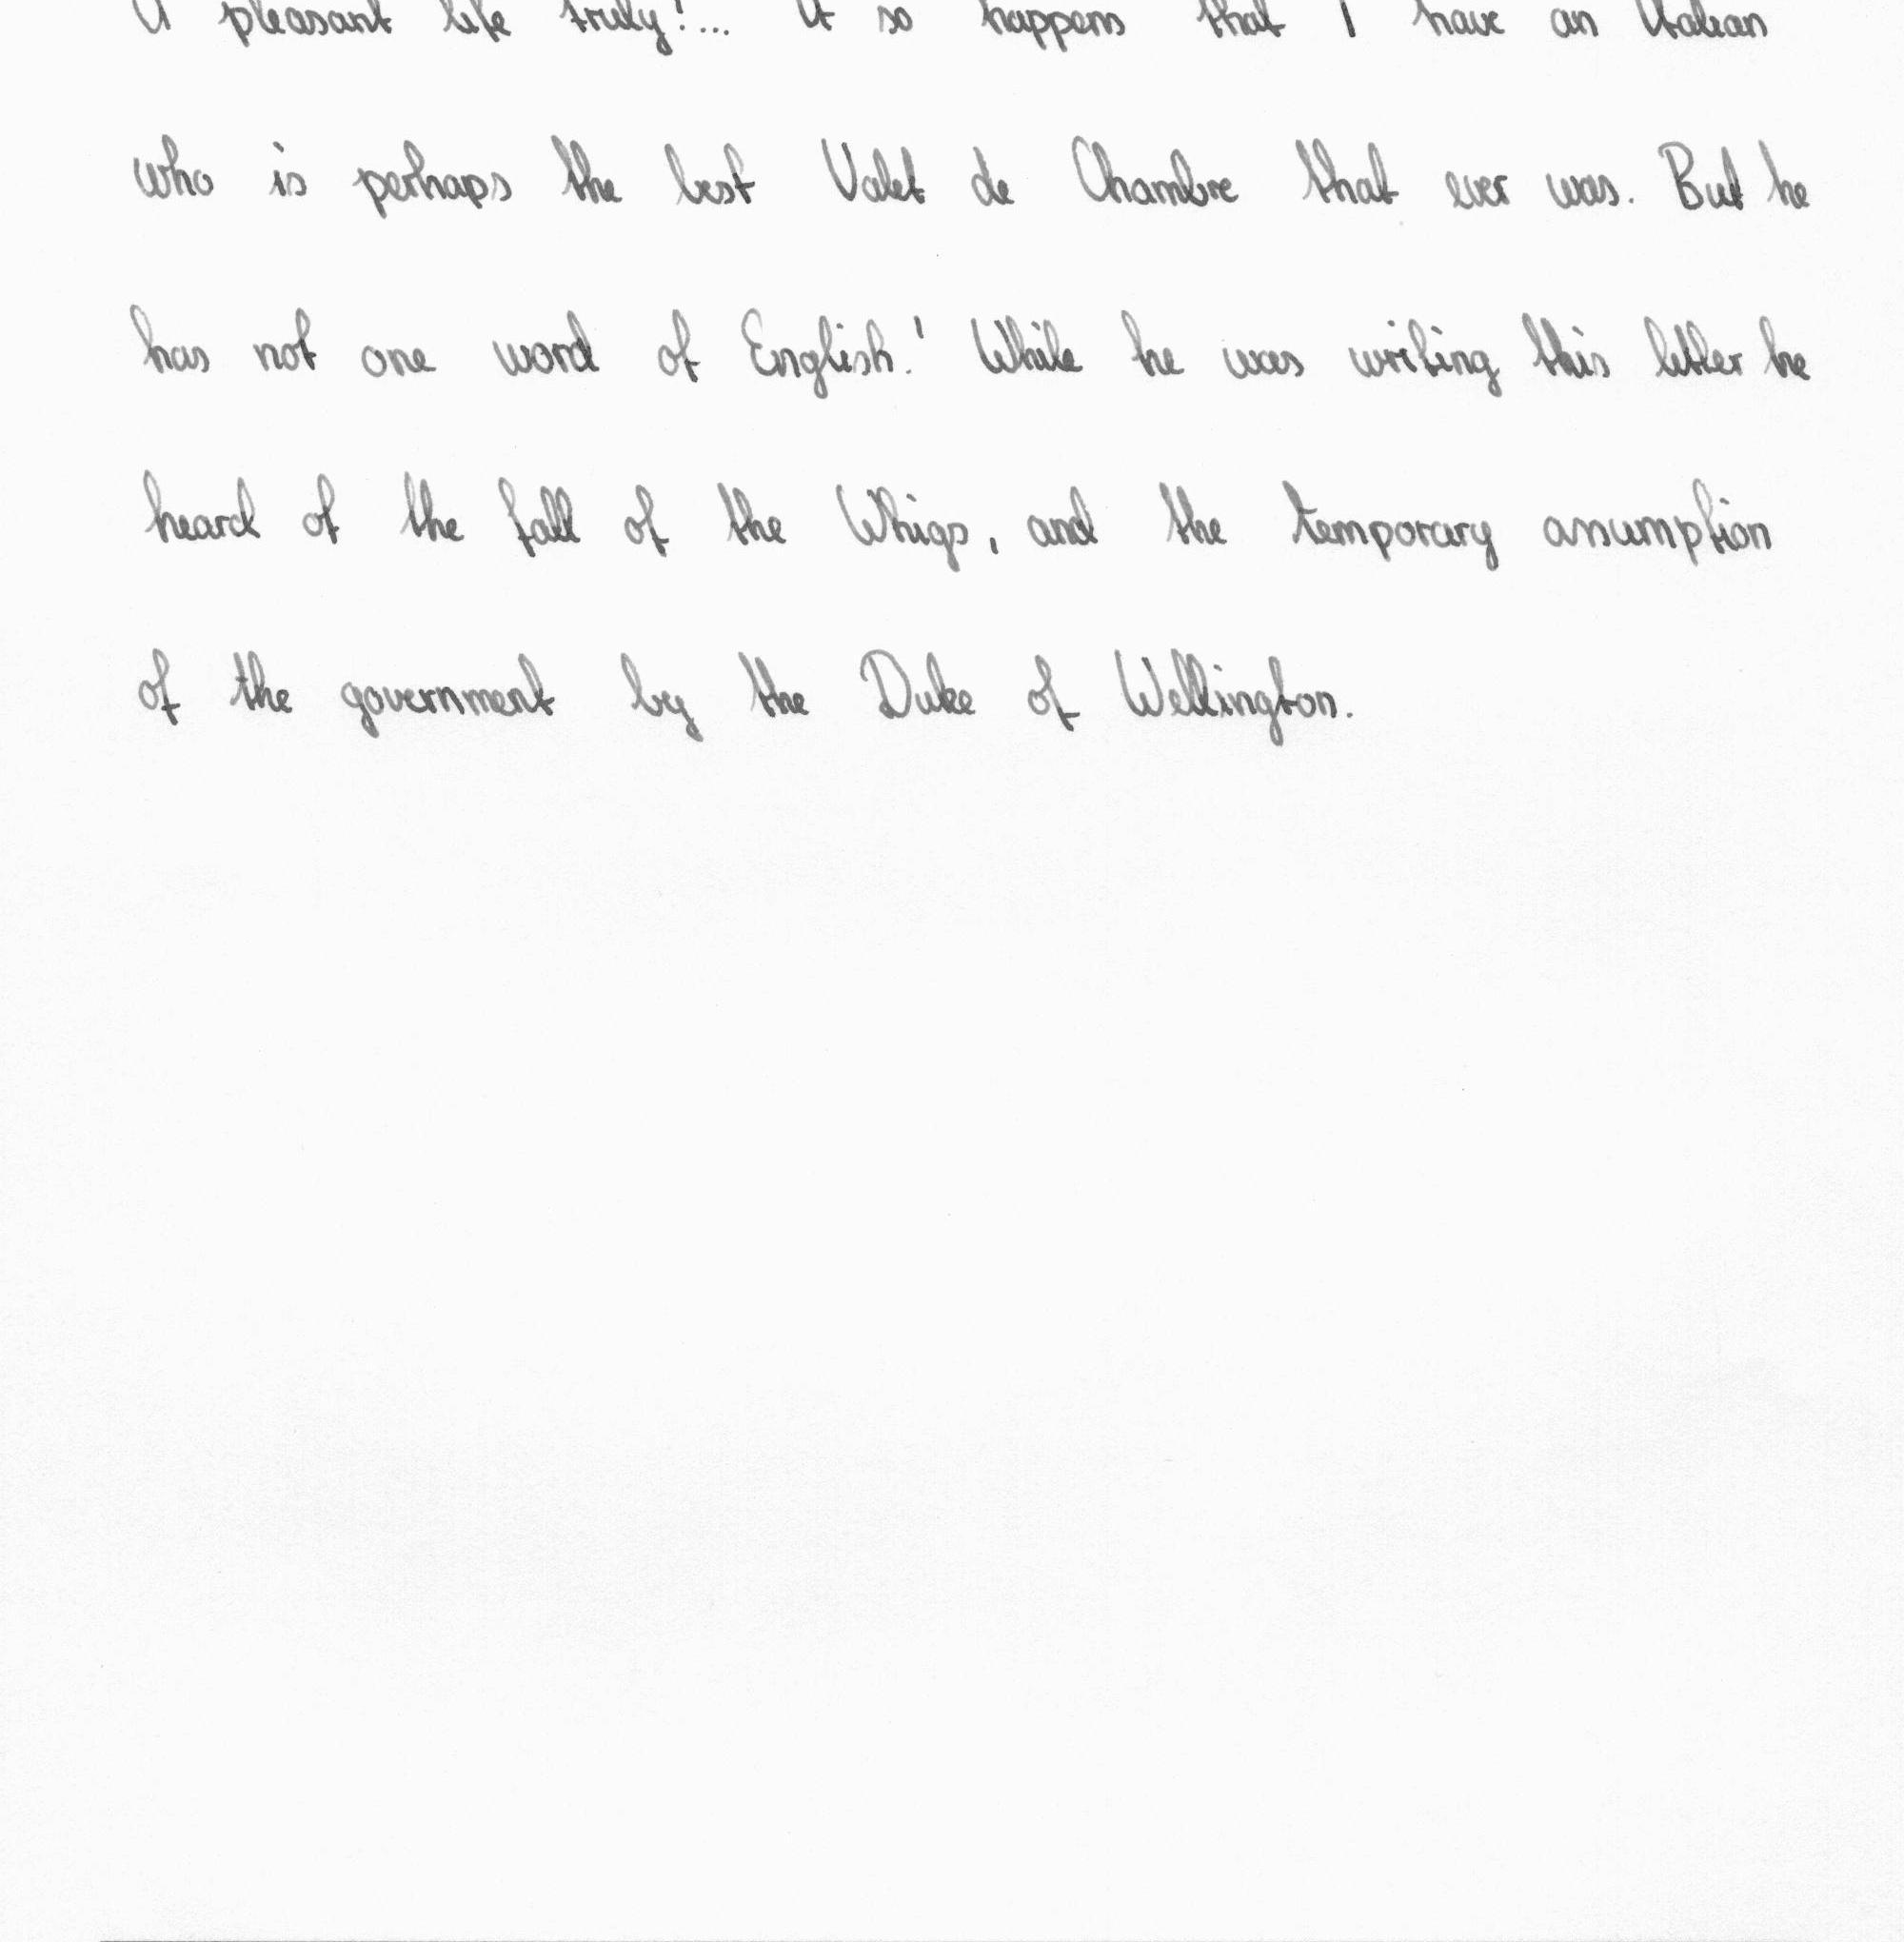 A pleasant life truly!... It so happens that I have an Italian
who is perhaps the best Valet de Chambre that ever was. But he
has not one word of English! While he was writing this letter he
heard of the fall of the Whigs, and the temporary assumption
of the government by the Duke of Wellington.